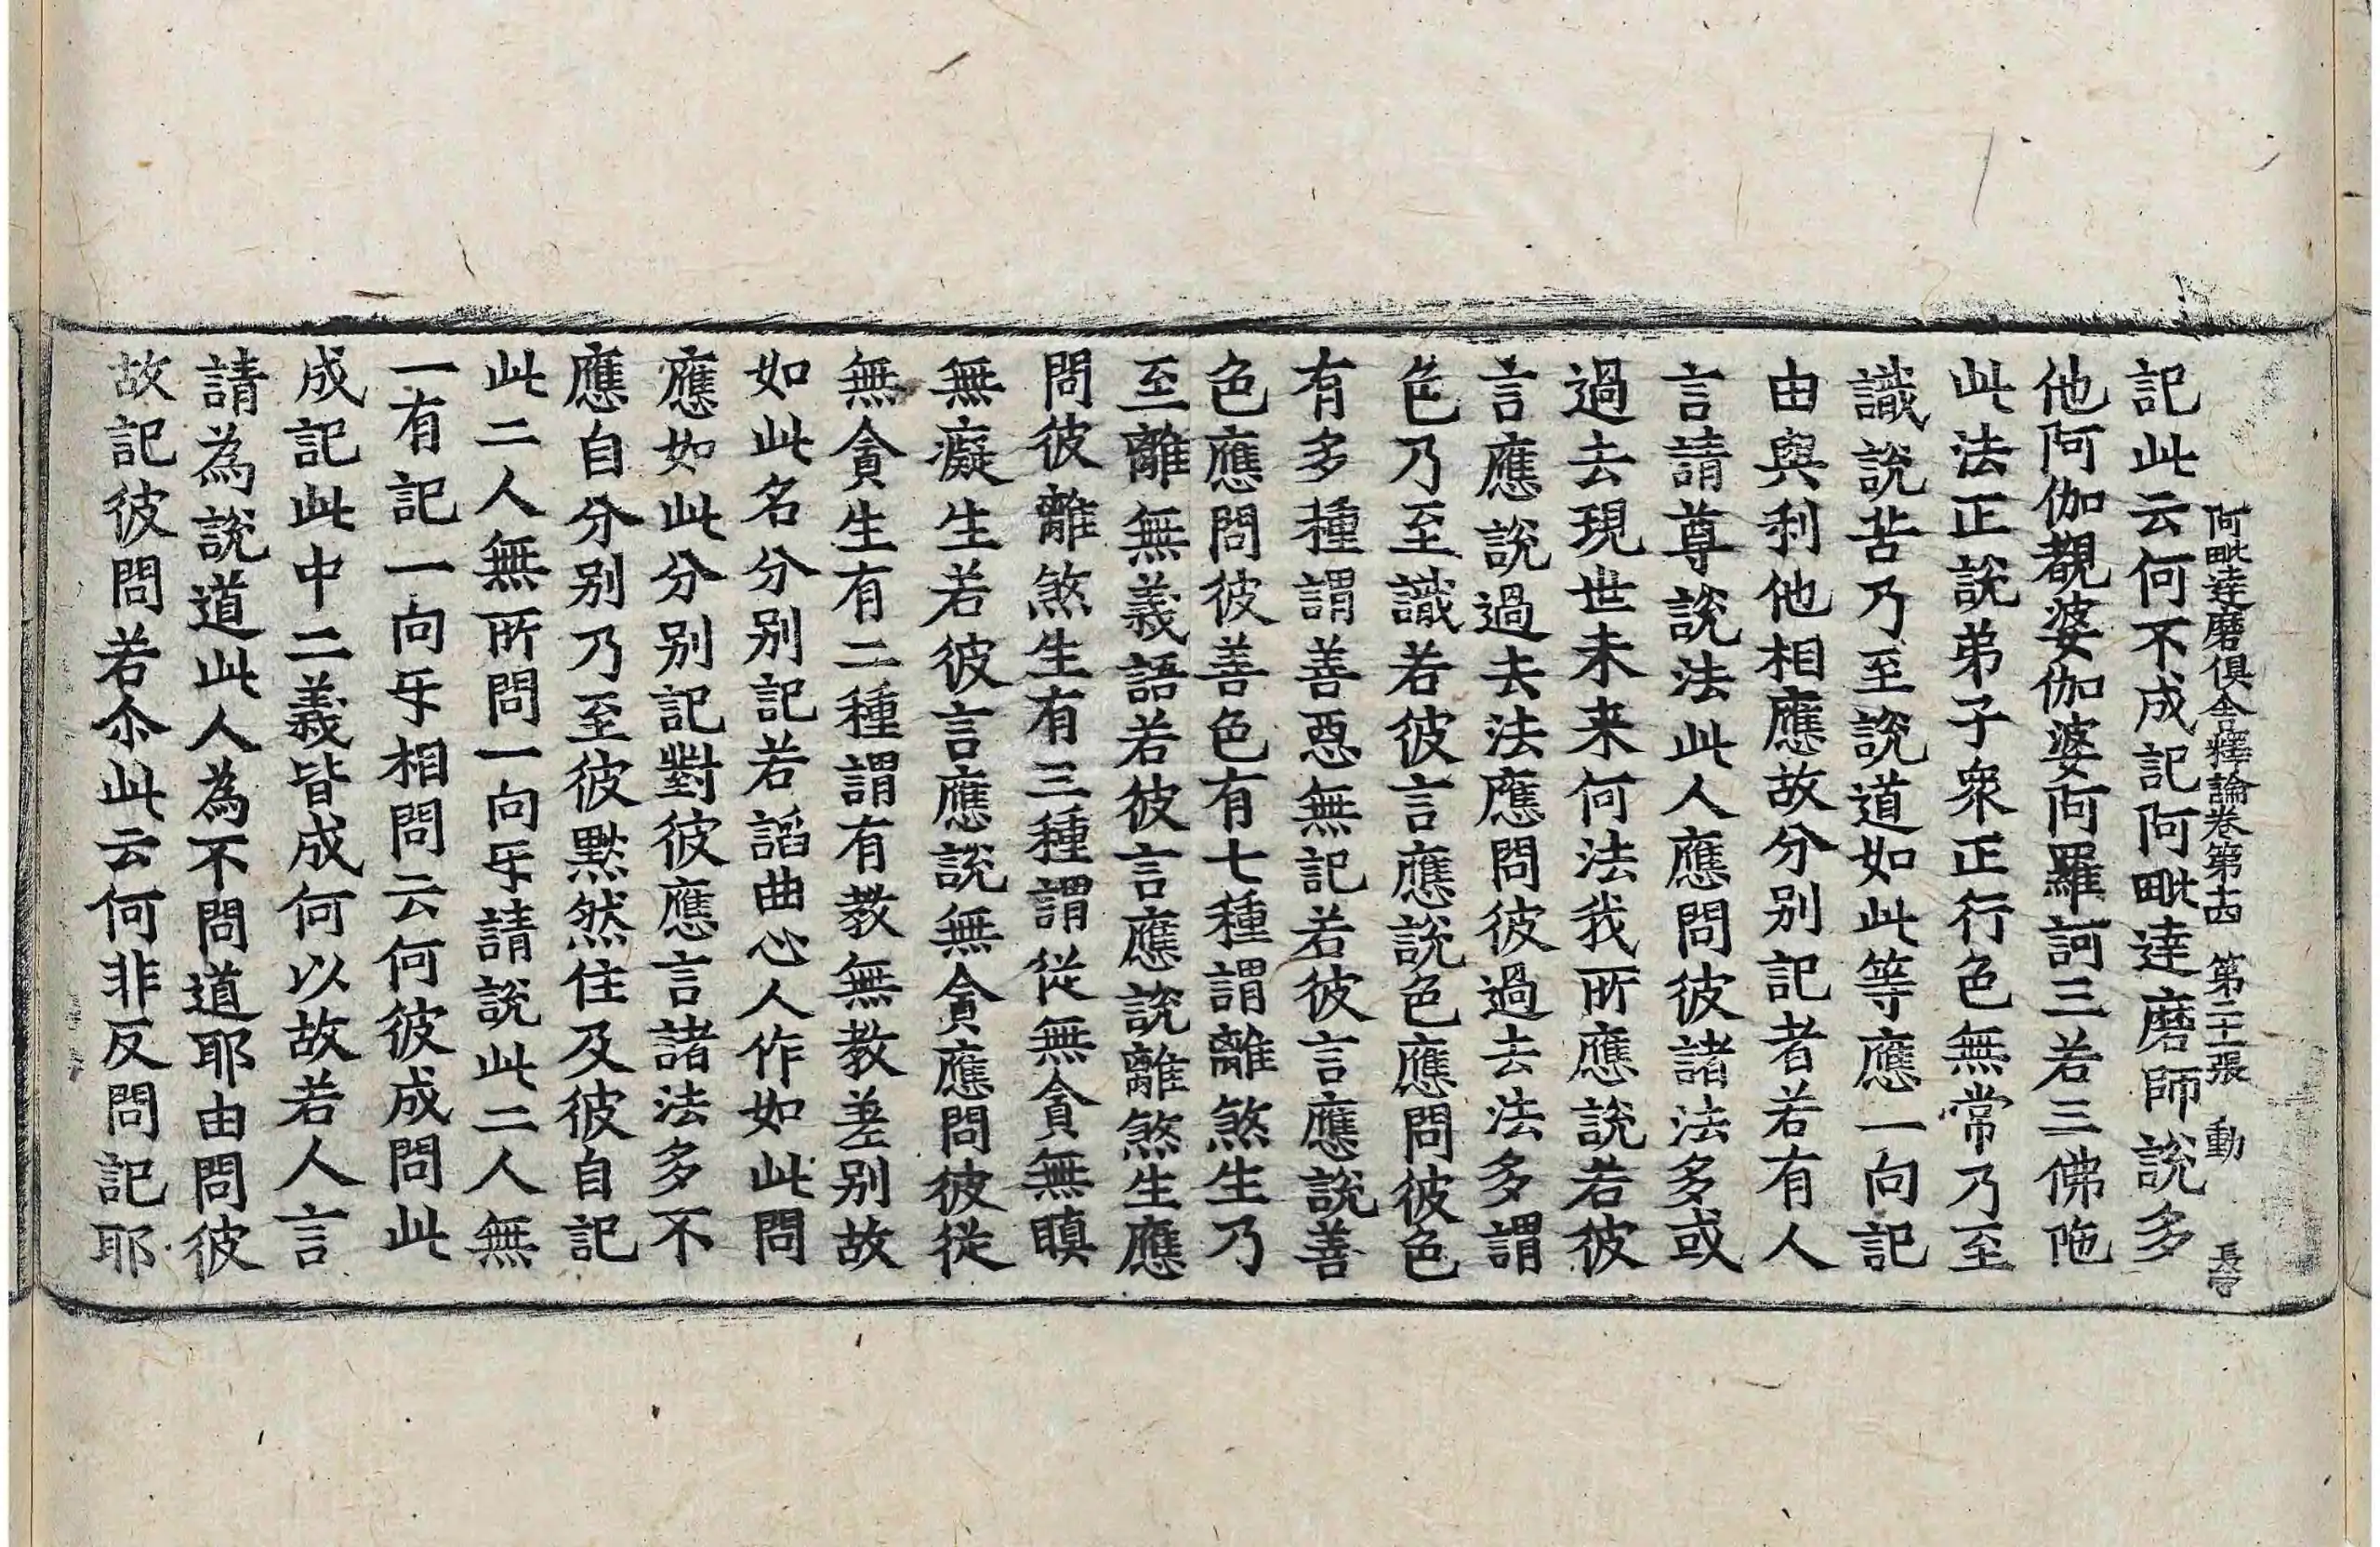 阿毗達磨俱舍釋論卷第十四 第二十一張 動 長守
記此云何不成記阿毗達磨師說多
他阿伽覩婆伽婆阿羅訶三若三佛陁
此法正說弟子衆正行色無常乃至
識說苦乃至說道如此等應一向記
由與利他相應故分別記者若有人
言請尊說法此人應問彼諸法多或
過去現世未来何法我所應說若彼
言應說過去法應問彼過去法多謂
色乃至識若彼言應說色應問彼色
有多種謂善惡無記若彼言應說善
色應問彼善色有七種謂離煞生乃
至離無義語若彼言應說離煞生應
問彼離煞生有三種謂從無貪無瞋
無癡生若彼言應說無貪應問彼從
無貪生有二種謂有教無教差別故
如此名分別記若謟曲心人作如此問
應如此分別記對彼應言諸法多不
應自分別乃至彼黙然住及彼自記
此二人無所問一向㸦請說此二人無
一有記一向㸦相問云何彼成問此
成記此中二義皆成何以故若人言
請為說道此人為不問道耶由問彼
故記彼問若尒此云何非反問記耶